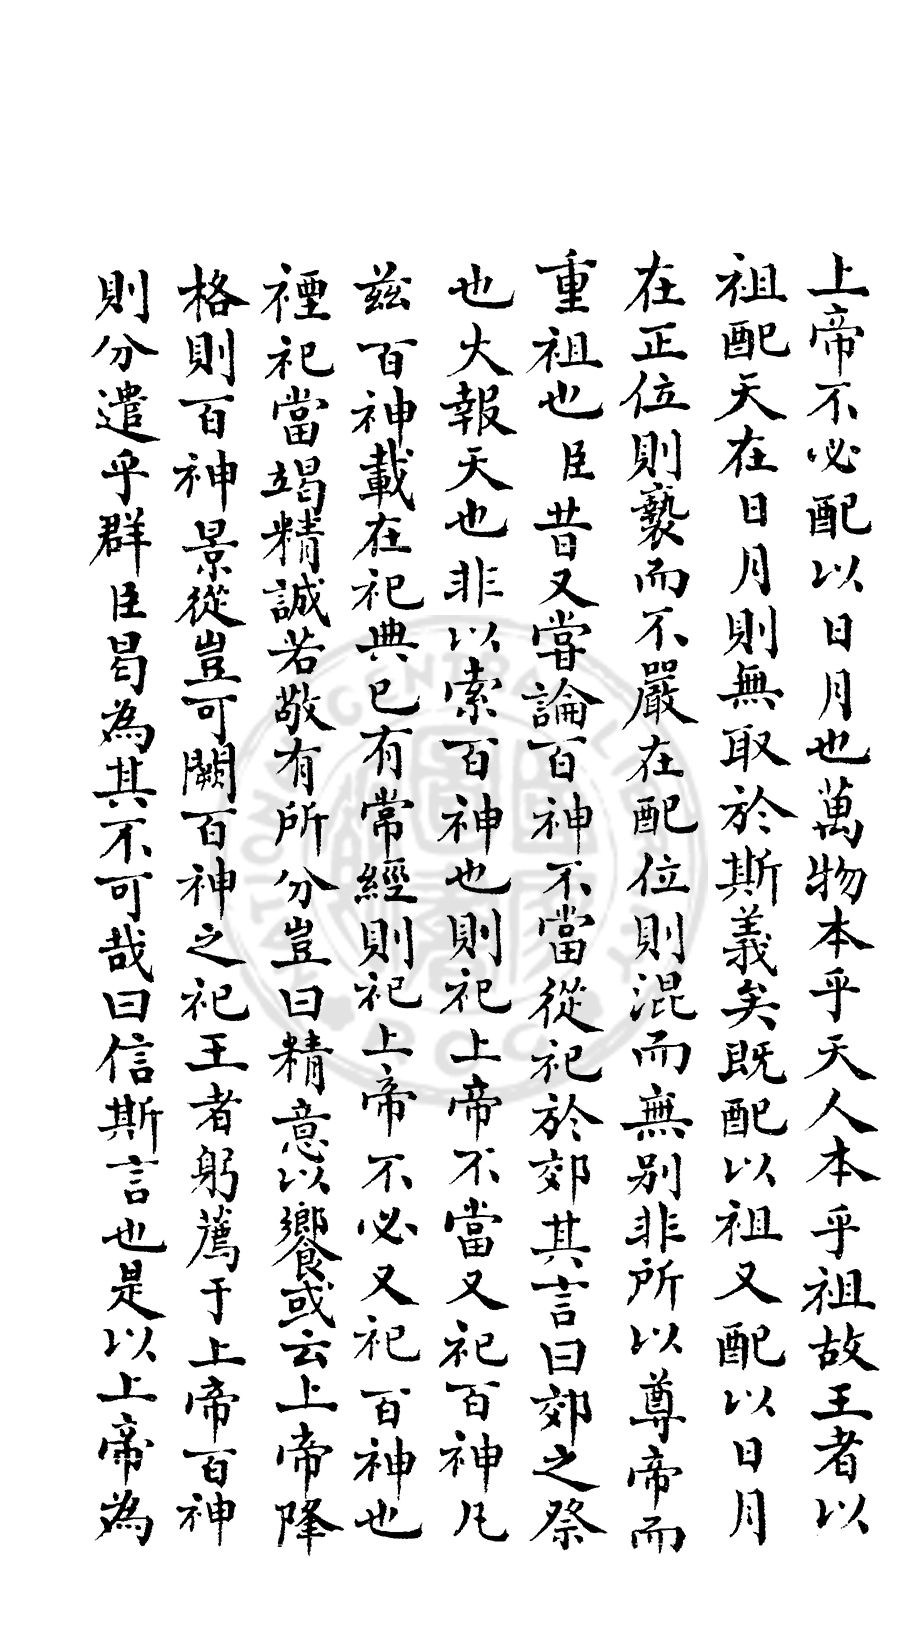 上帝不必配以日月也萬物本乎天人本乎祖故王者以
祖配天在日月則無取於斯義矣既配以祖又配以日月
在正位則褻而不嚴在配位則混而無别非所以尊帝而
重祖也臣昔又嘗論百神不當從祀於郊其言曰郊之祭
也大報天也非以索百神也則祀上帝不當又祀百神凡
兹百神載在祀典已有常經則祀上帝不必又祀百神也
禋祀當竭精誠若敬有所分豈曰精意以饗或云上帝降
格則百神景從豈可闕百神之祀王者躬薦于上帝百神
則分遣乎群臣曷為其不可哉曰信斯言也是以上帝為
CENTRAL LIBRARY